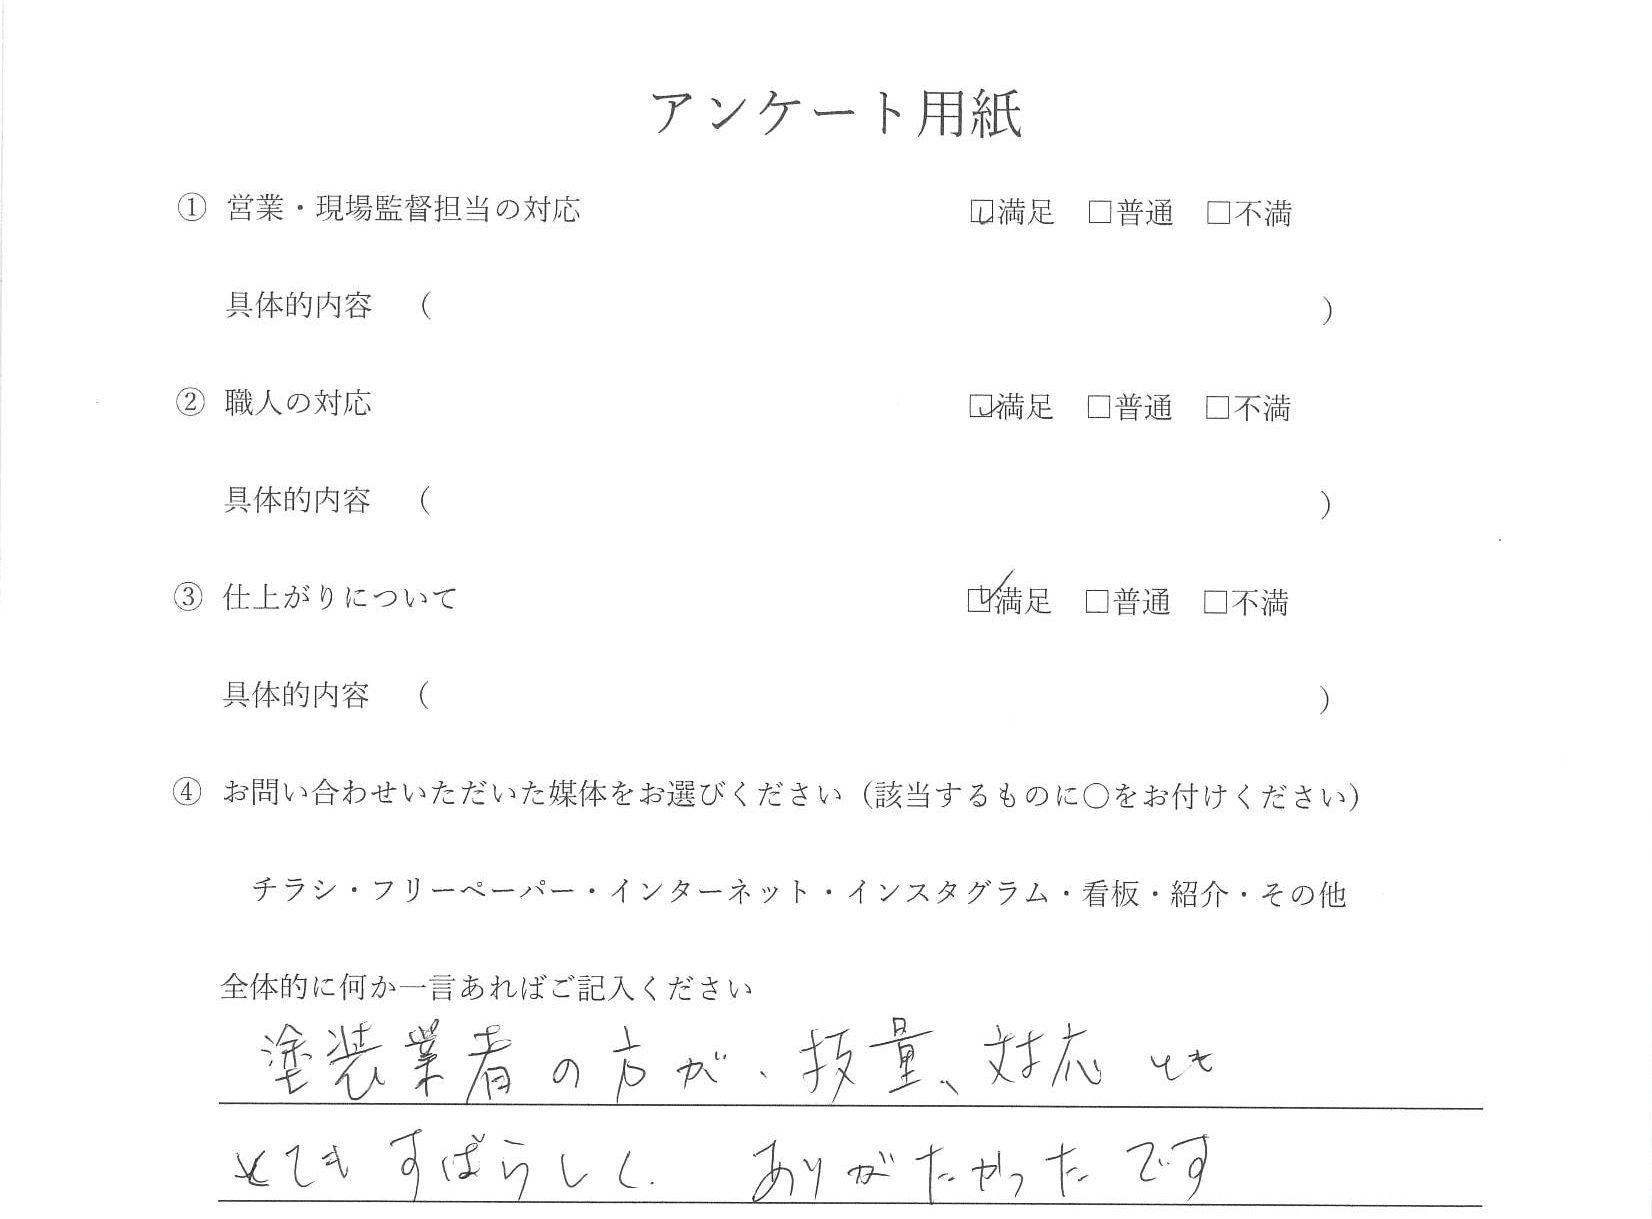 アンケート用紙
① 営業・現場監督担当の対応 ☑満足 □普通 □不満
具体的内容 （ ）
② 職人の対応 ☑満足 □普通 □不満
具体的内容 （ ）
③ 仕上がりについて ☑満足 □普通 □不満
具体的内容 （ ）
④ お問い合わせいただいた媒体をお選びください（該当するものに〇をお付けください）
チラシ・フリーペーパー・インターネット・インスタグラム・看板・紹介・その他
全体的に何か一言あればご記入ください
塗装業者の方が、技量、対応とも
とてもすばらしく、ありがたかったです